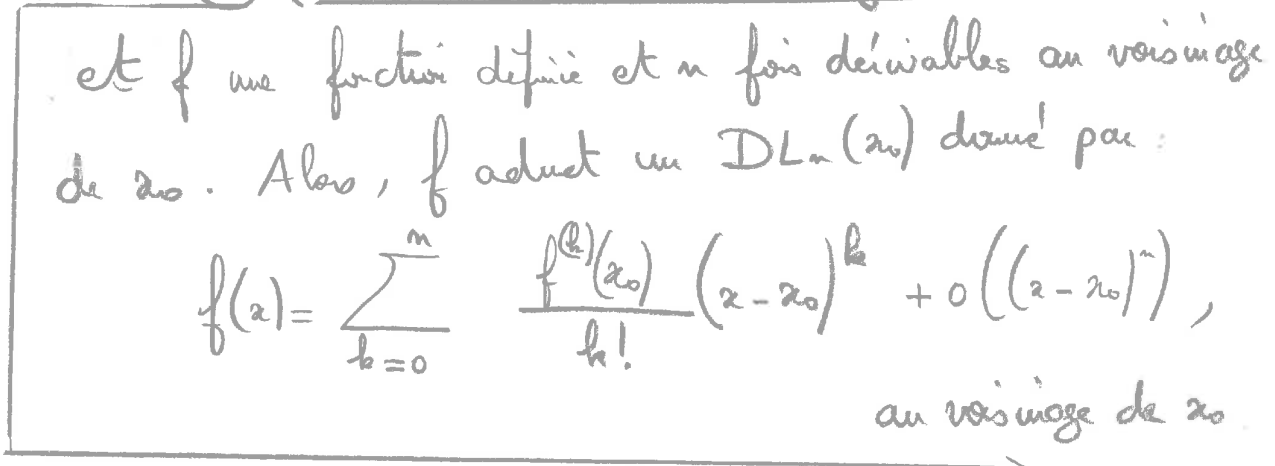 et f une fonction définie et n fois dérivables au voisinage
de x₀. Alors, f admet un DLₙ(x₀) donné par :
f(x) = ∑_{k=0}^{n} f^{(k)}(x₀)/k! (x - x₀)^k + o((x - x₀)^n),
au voisinage de x₀